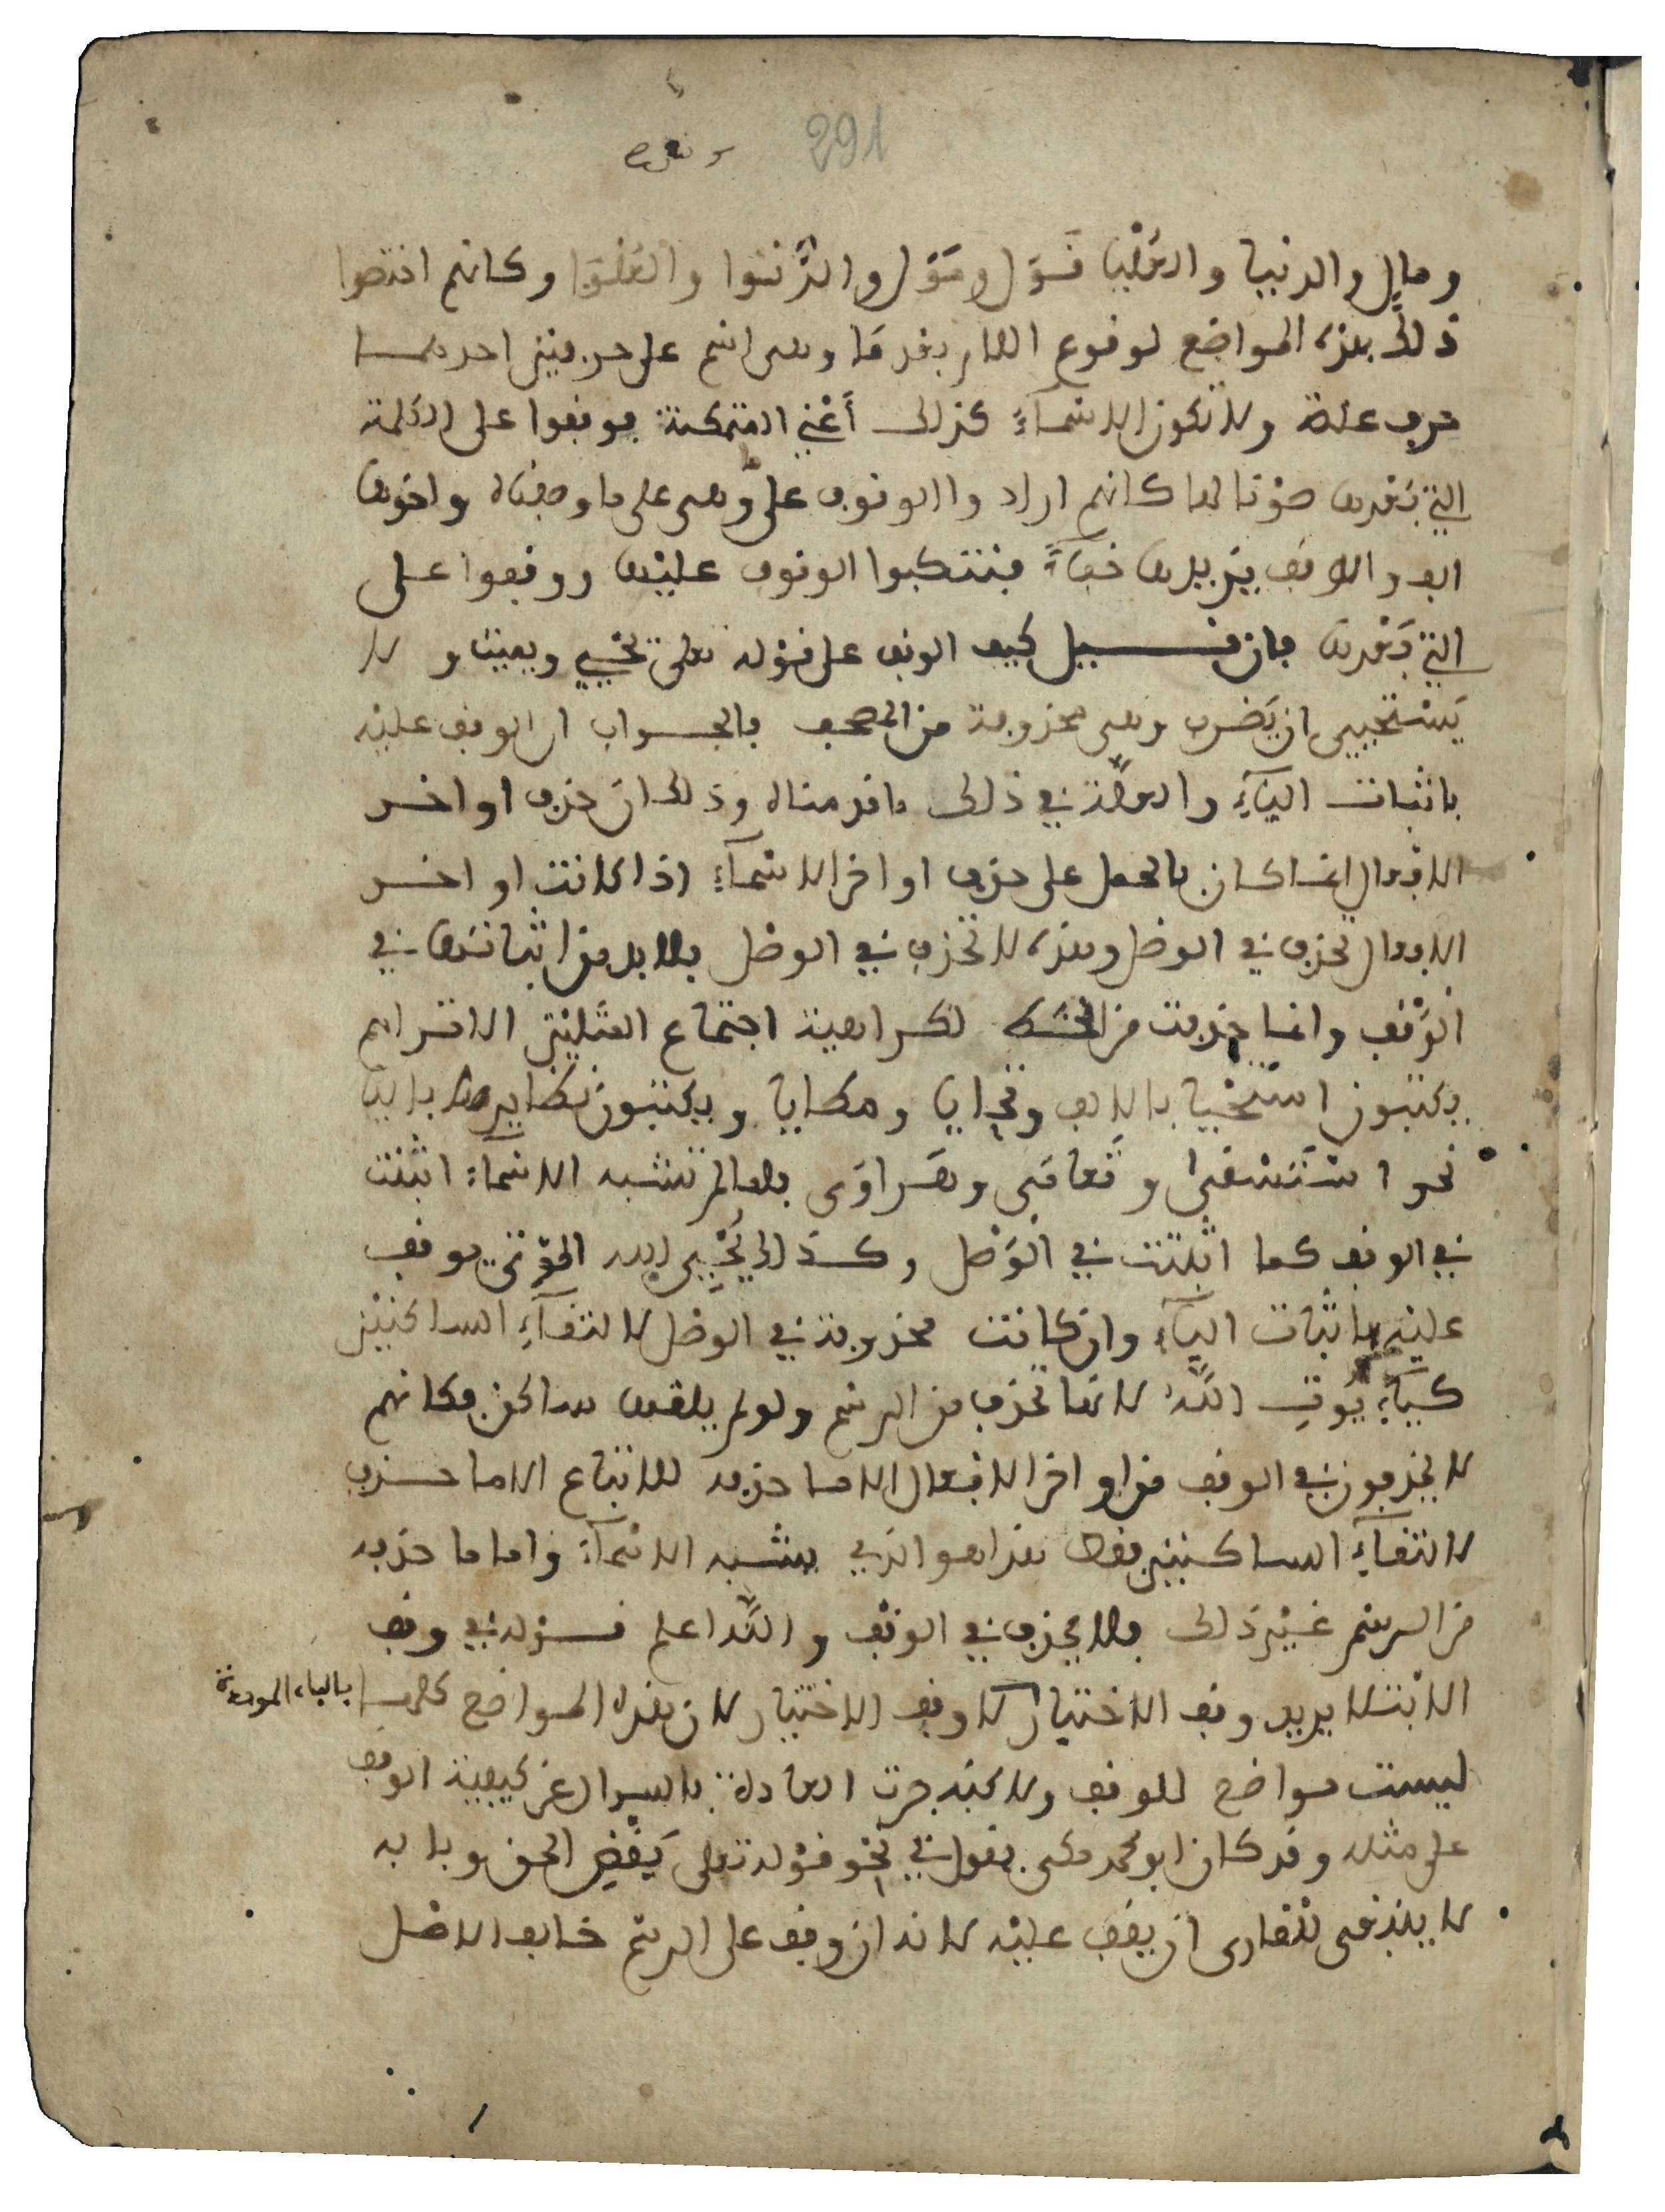 291
ومال والدنيا والعليا قول ومول والدنيوا والعلوا وكانهم اختصوا
ذلك بهذه المواضع لوقوع اللام بعدها وهي اسم على حرفين احدهما
حرف علة ولا تكون الاسماء كذلك أعني المتمكنة فوقفوا على الكلمة
التي بعدها صونا لها كانهم ارادوا الوقوف على وهي على ما وصفناه واخوها
الف والالف يزيدها خفاء فتنكبوا الوقوف عليها ووقفوا على
التي بعدها فان قيل كيف الوقف على قوله تعلى تحيي ويميت ولا
يستحيي ان يضرب وهي محذوفة من المصحف فالجواب ان الوقف عليه
باثبات الياء والعلة في ذلك ما قدمناه وذلك ان حذف اواخر
الافعال انما كان بالحمل على حذف اواخر الاسماء اذا كانت اواخر
الافعال تحذف في الوصل وهذه لا تحذف في الوصل فلا بد من اثباتها في
الوقف وانما حذفت من الخط لكراهية اجتماع المثلين الا تراهم
يكتبون استحيا بالالف وتحايا ومطايا ويكتبون نظايرها بالياء
نحو استسقى وتعامى وهراوى فلما لم تشبه الاسماء اثبتت
في الوقف كما اثبتت في الوصل وكذلك يحيي الله الموتى يوقف
عليه باثبات الياء وان كانت محذوفة في الوصل لالتقاء الساكنين
كياء يوت الله لانها تحذف من الرسم ولو لم يلقها ساكن فكانهم
لا يحذفون في الوقف من اواخر الافعال الا ما حذف للاتباع الا ما حذف
لالتقاء الساكنين فقط هذا هو الذي يشبه الاسماء واما ما حذف
من الرسم غير ذلك فلا يحذف في الوقف والله اعلم قوله في وقف
الابتلا يريد وقف الاختبار لا وقف الاختيار لان هذه المواضع كلها
بالباء الموحدة
ليست مواضع للوقف ولاكنه جرت العادة بالسوال عن كيفية الوقف
على مثله وقد كان ابو محمد مكي يقول في نحو قوله تعلى يقض الحق وبابه
لا ينبغي للقارى ان يقف عليه لانه ان وقف على الرسم خالف الاصل